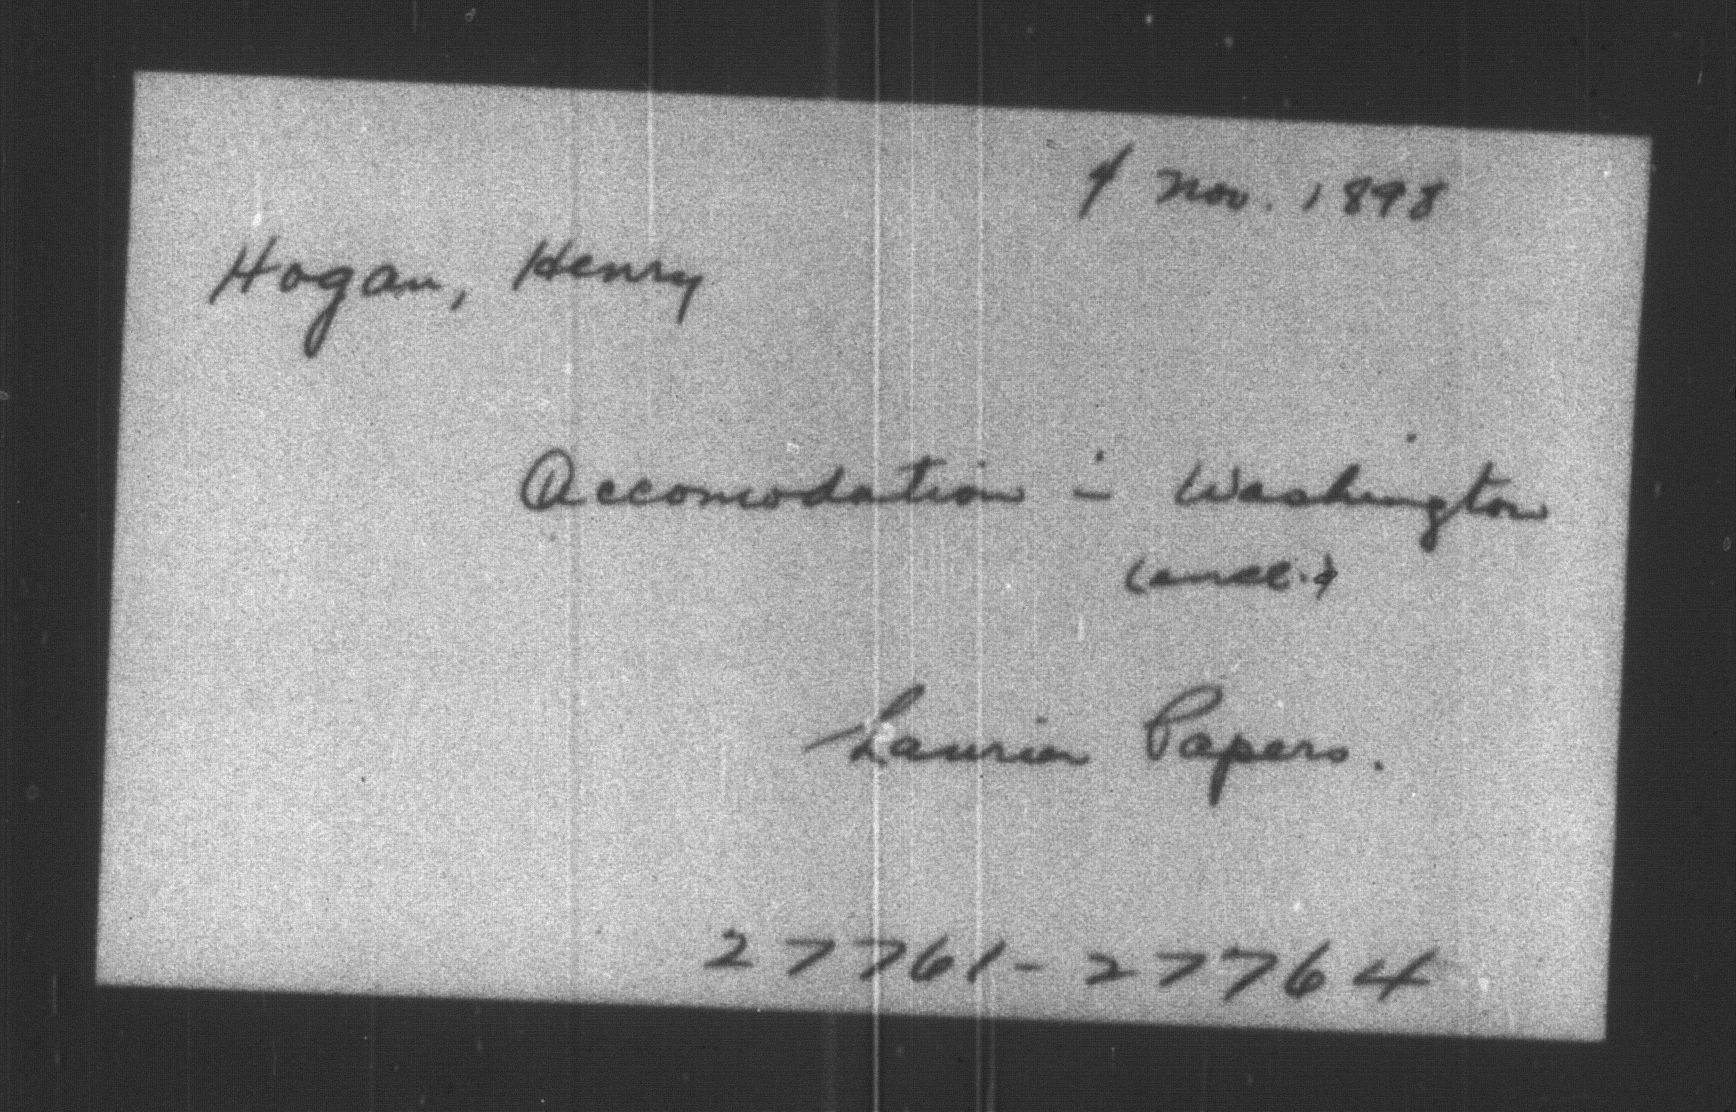 Nov. 1898
Hogan, Henry
Accomodation in Washington
(encl.)
Laurier Papers.
27761-27764